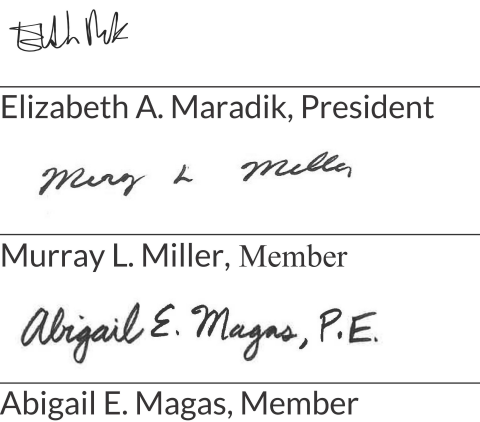 Elizabeth A. Maradik, President
Murray L. Miller
Murray L. Miller, Member
Abigail E. Magas, P.E.
Abigail E. Magas, Member